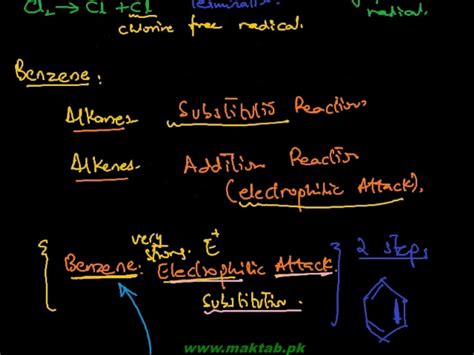 Cl₂ → Cl + Cl
chlorine free radical.
radical.
Benzene:
Alkanes Substitutis Reaction.
Alkenes. Addition Reaction
(electrophilic Attack).
very strong. E⁺
Benzene: Electrophilic Attack. 2 steps
Substitution.
www.maktab.pk